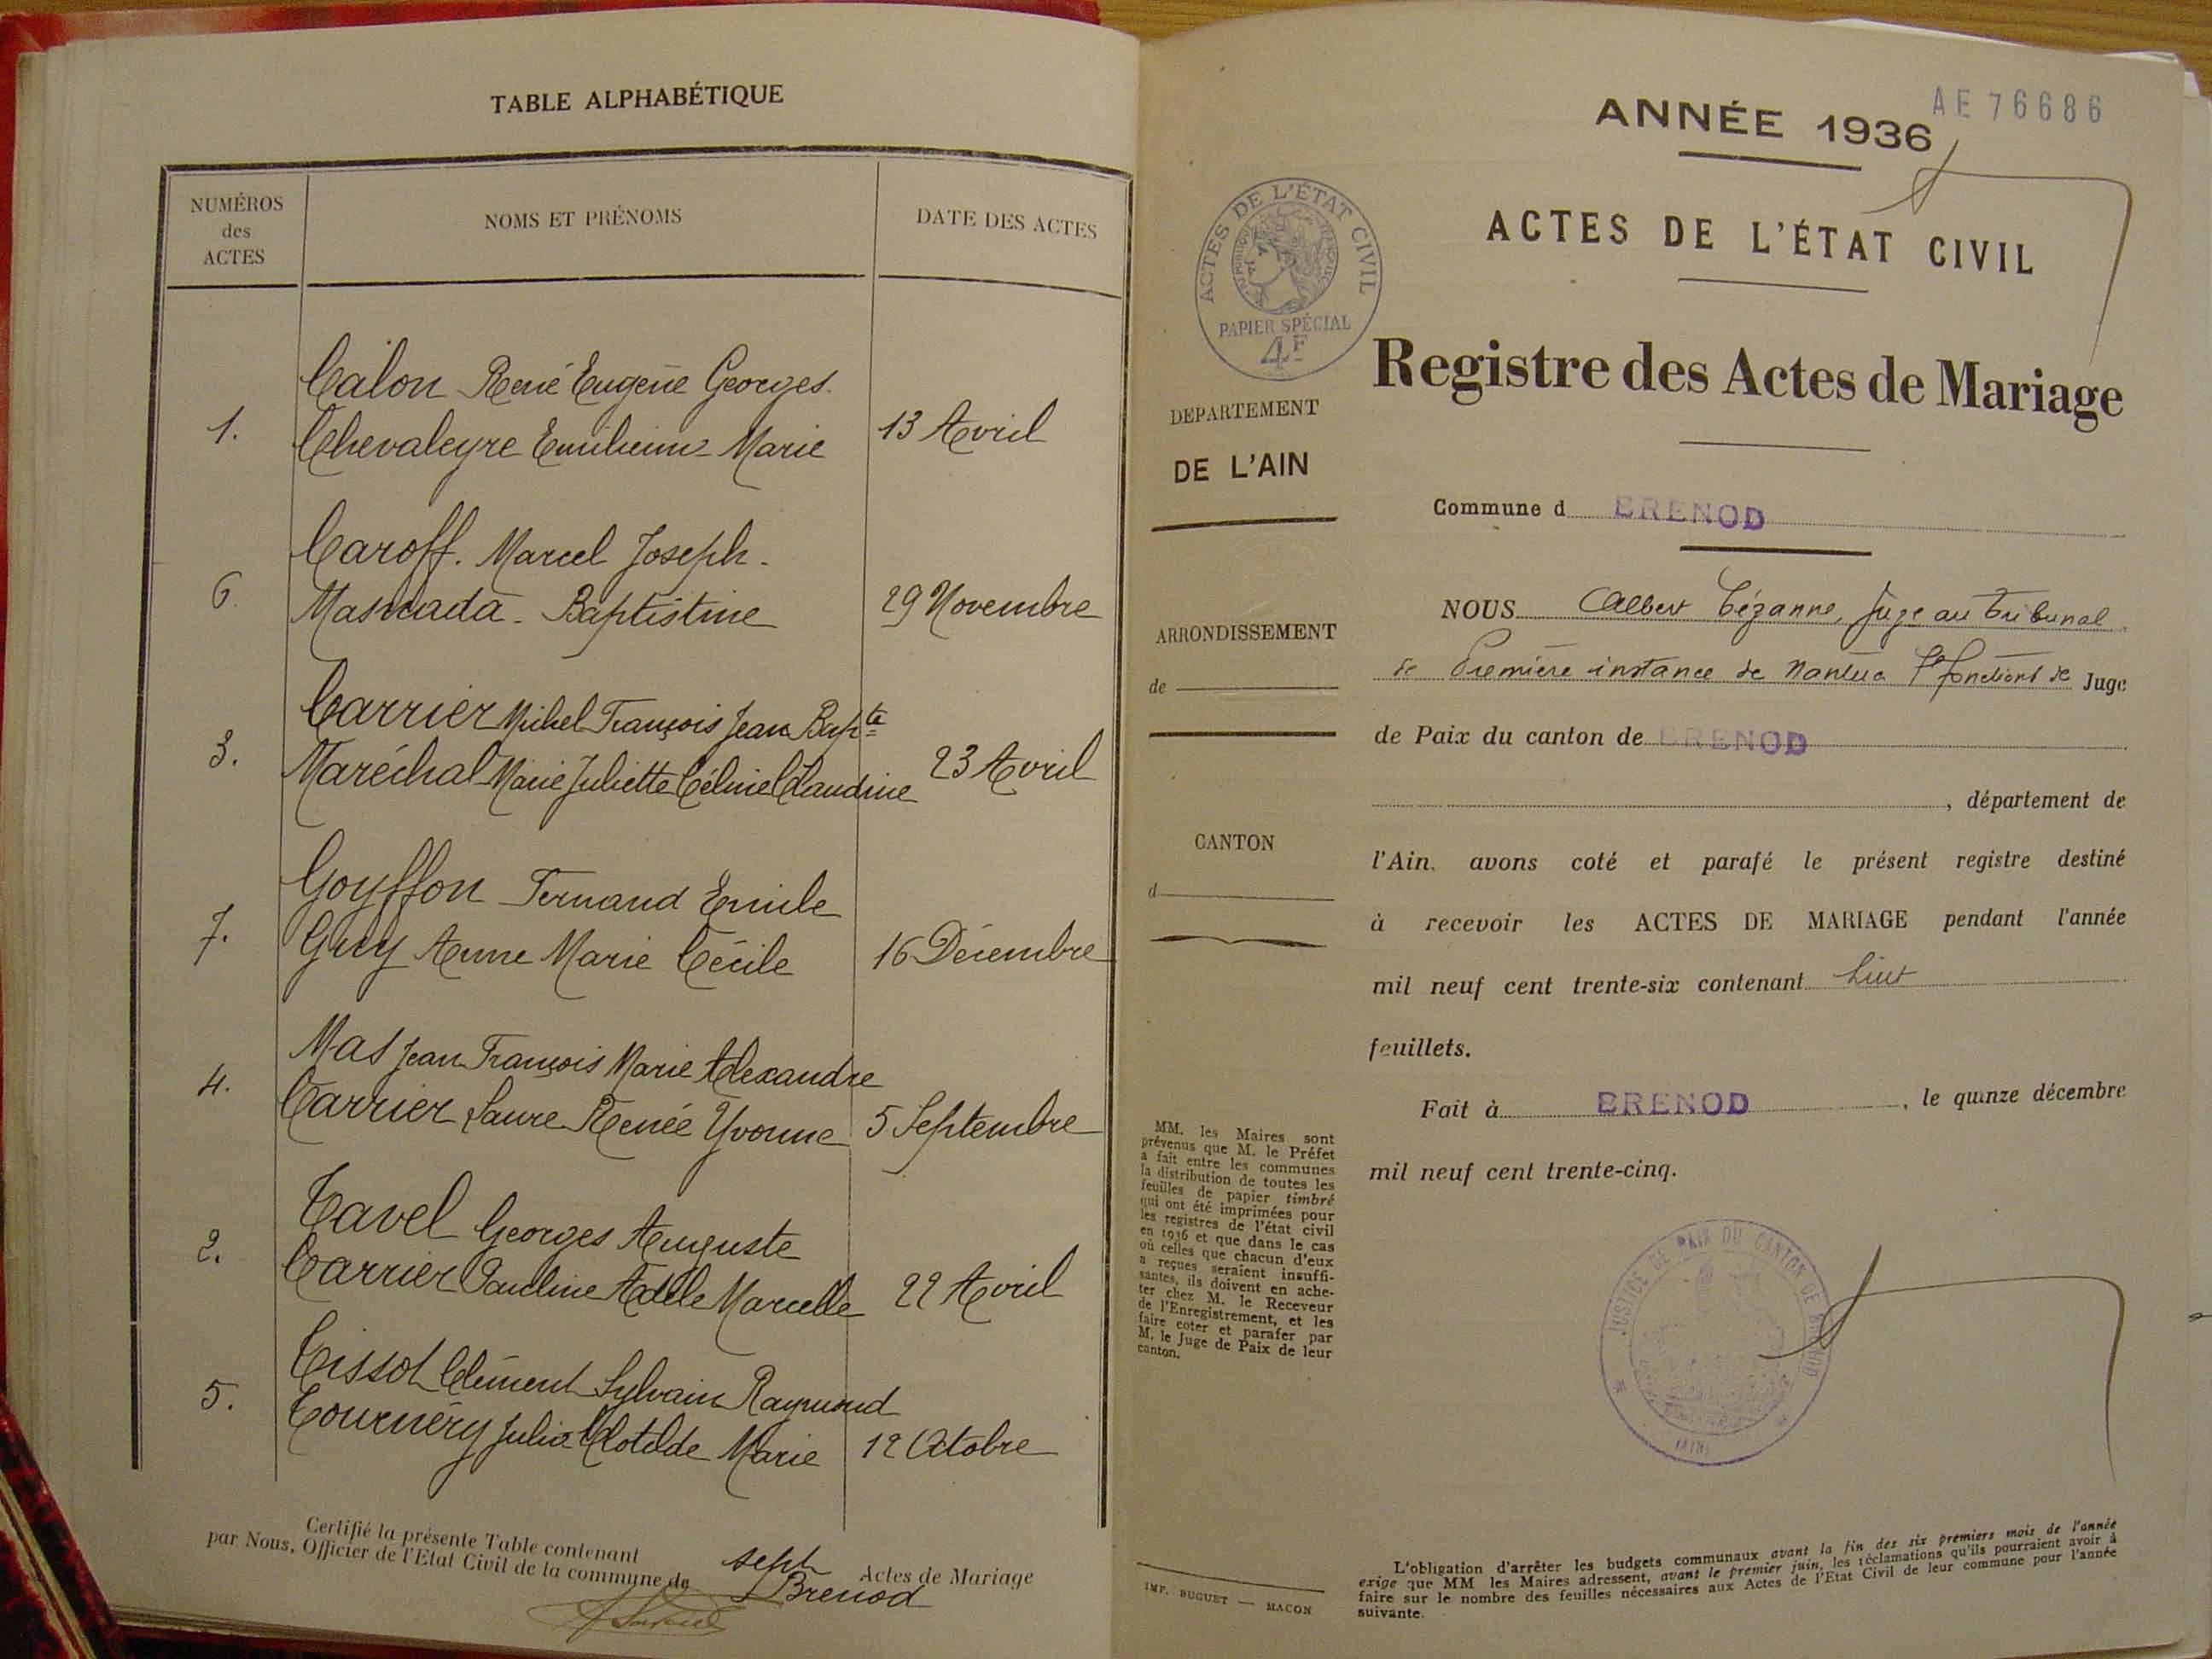 TABLE ALPHABÉTIQUE
NUMÉROS
des
ACTES
NOMS ET PRÉNOMS
DATE DES ACTES
Calon René Eugène Georges.
1. Chevaleyre Emilienne Marie 13 Avril
Caroff. Marcel Joseph.
6. Masnada. Baptistine 29 Novembre
Carrier Michel François Jean Bapte
3. Maréchal Marie Juliette Céline Claudine 23 Avril
Goyffon Fernand Emile
7. Guy Anne Marie Cécile 16 Décembre
Mas Jean François Marie Alexandre
4. Carrier Laure Renée Yvonne 5 Septembre
Tavel Georges Auguste
2. Carrier Pauline Adèle Marcelle 22 Avril
Tissot Clément Sylvain Raymond
5. Tournéry Julia Clotilde Marie 12 Octobre
Certifié la présente Table contenant sept Actes de Mariage
par Nous, Officier de l'Etat Civil de la commune de Brenod
AE 76686
ANNÉE 1936
ACTES DE L'ÉTAT CIVIL
ACTES DE L'ÉTAT CIVIL
RÉPUBLIQUE FRANÇAISE
PAPIER SPÉCIAL
4F
Registre des Actes de Mariage
DEPARTEMENT
DE L'AIN
Commune d BRENOD
ARRONDISSEMENT
de
CANTON
d
NOUS Albert Cézanne, Juge au Tribunal
de Première instance de Nantua fons de Juge
de Paix du canton de BRENOD
, département de
l'Ain. avons coté et parafé le présent registre destiné
à recevoir les ACTES DE MARIAGE pendant l'année
mil neuf cent trente-six contenant huit
feuillets.
Fait à BRENOD, le quinze décembre
mil neuf cent trente-cinq.
MM. les Maires sont
prévenus que M. le Préfet
a fait entre les communes
la distribution de toutes les
feuilles de papier timbré
qui ont été imprimées pour
les registres de l'état civil
en 1936 et que dans le cas
où celles que chacun d'eux
a reçues seraient insuffi-
santes, ils doivent en ache-
ter chez M. le Receveur
de l'Enregistrement, et les
faire coter et parafer par
M. le Juge de Paix de leur
canton.
JUSTICE DE PAIX DU CANTON DE BRENOD
(AIN)
IMP. BUGUET — MACON
L'obligation d'arrêter les budgets communaux avant la fin des six premiers mois de l'année
exige que MM les Maires adressent, avant le premier juin, les réclamations qu'ils pourraient avoir à
faire sur le nombre des feuilles nécessaires aux Actes de l'Etat Civil de leur commune pour l'année
suivante.